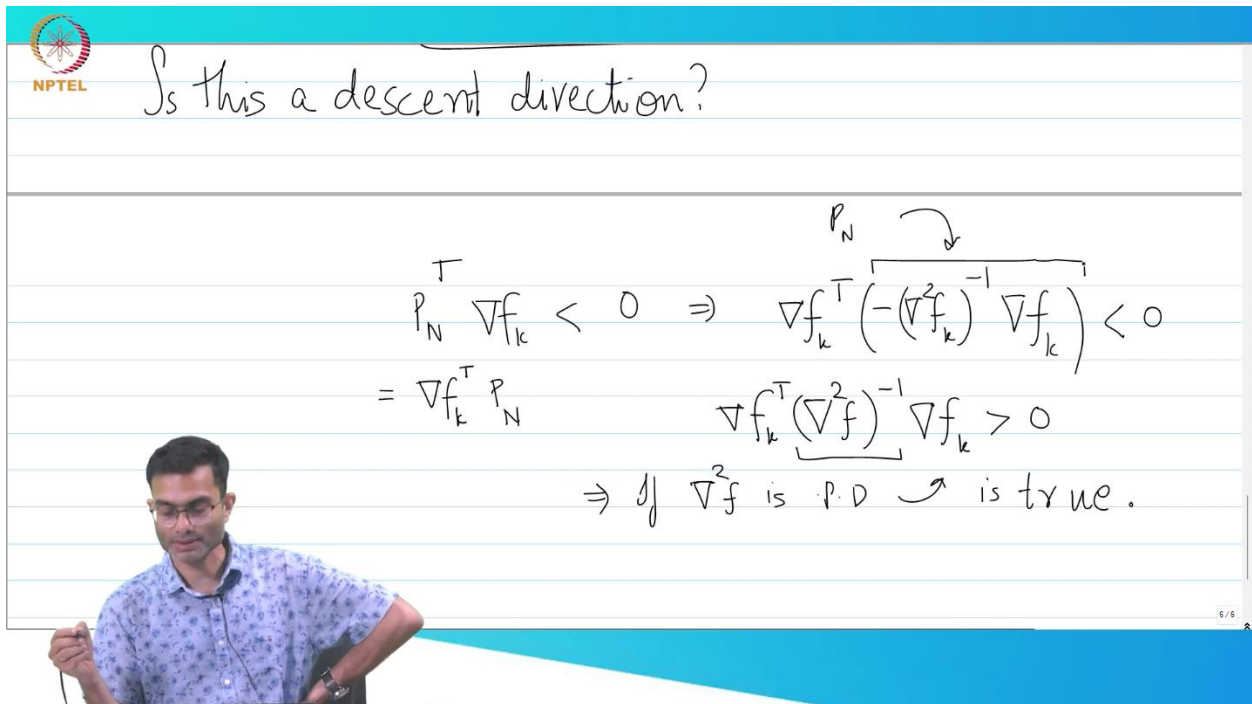 NPTEL
Is this a descent direction?
P_N
P_N^T ∇f_k < 0 ⇒ ∇f_k^T (-(∇²f_k)^{-1} ∇f_k) < 0
= ∇f_k^T P_N
∇f_k^T (∇²f)^{-1} ∇f_k > 0
⇒ If ∇²f is P.D is true.
6/6